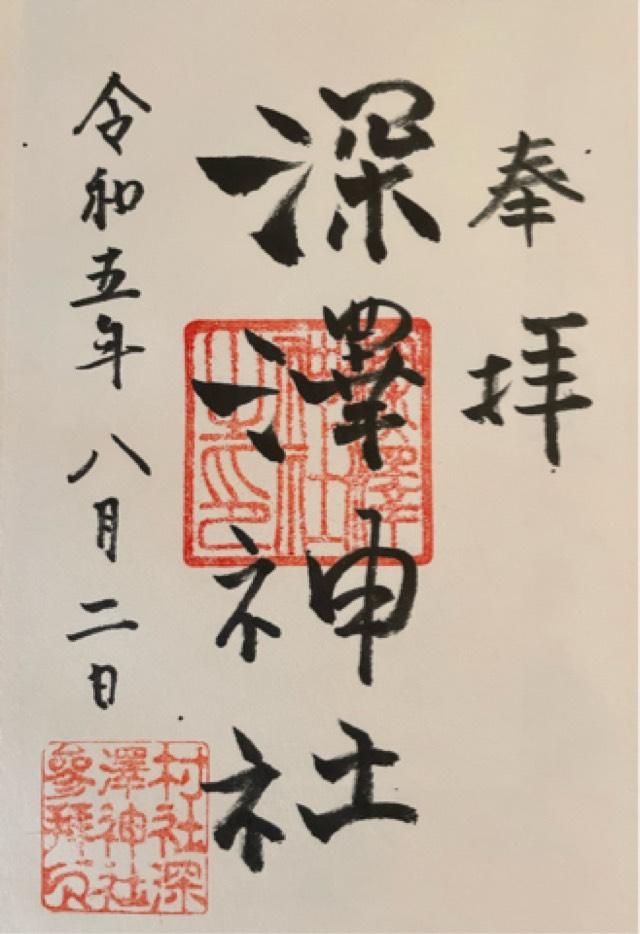 奉拝
深澤神社
令和五年八月二日
深澤
神社
之印
村社深
澤神社
參拜